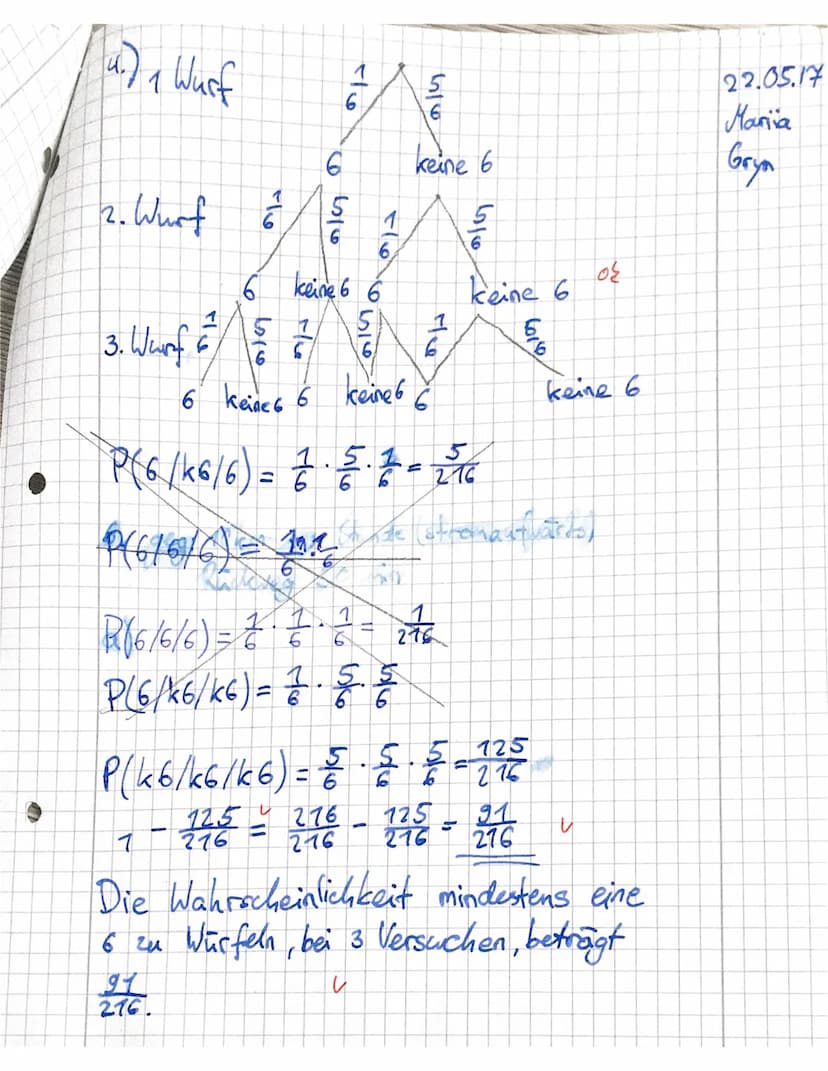 a.) 1 Wurf
1/6 5/6
22.05.17
Mariia
Gryn
6 keine 6
2. Wurf 1/6 5/6 1/6 5/6
6 keine 6 6 keine 6 ok
3. Wurf 1/6 5/6 1/6 5/6 1/6 5/6
6 keine 6 6 keine 6 6 keine 6
P(6/k6/6) = 1/6 · 5/6 · 1/6 = 5/216
P(6/6/6) =
P(6/6/6) = 1/6 · 1/6 · 1/6 = 1/216
P(6/k6/k6) = 1/6 · 5/6 · 5/6
P(k6/k6/k6) = 5/6 · 5/6 · 5/6 = 125/216
1 - 125/216 = 216/216 - 125/216 = 91/216
Die Wahrscheinlichkeit mindestens eine
6 zu Würfeln, bei 3 Versuchen, beträgt
91/216.